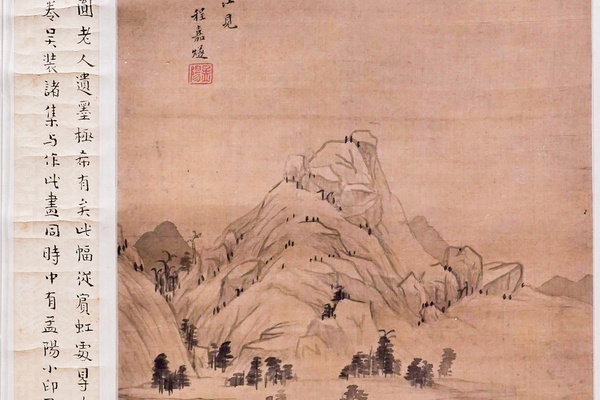 江見
程嘉燧
孟陽
圓老人遺墨極希有矣此幅從賓虹處尋
卷吳裝諸集与作此畫同時中有孟陽小印